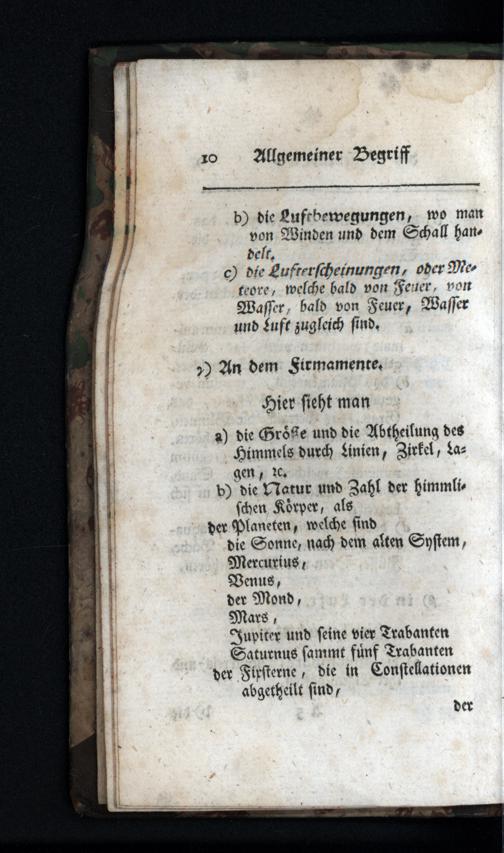 10 Allgemeiner Begriff
b) die Luftbewegungen, wo man
von Winden und dem Schall han-
delt.
c) die Lufterscheinungen, oder Me-
teore, welche bald von Feuer, von
Wasser, bald von Feuer, Wasser
und Luft zugleich sind.
γ) An dem Firmamente.
Hier sieht man
a) die Größe und die Abtheilung des
Himmels durch Linien, Zirkel, La-
gen, ꝛc.
b) die Natur und Zahl der himmli-
schen Körper, als
der Planeten, welche sind
die Sonne, nach dem alten System,
Mercurius,
Venus,
der Mond,
Mars,
Jupiter und seine vier Trabanten
Saturnus sammt fünf Trabanten
der Fixsterne, die in Constellationen
abgetheilt sind,
der